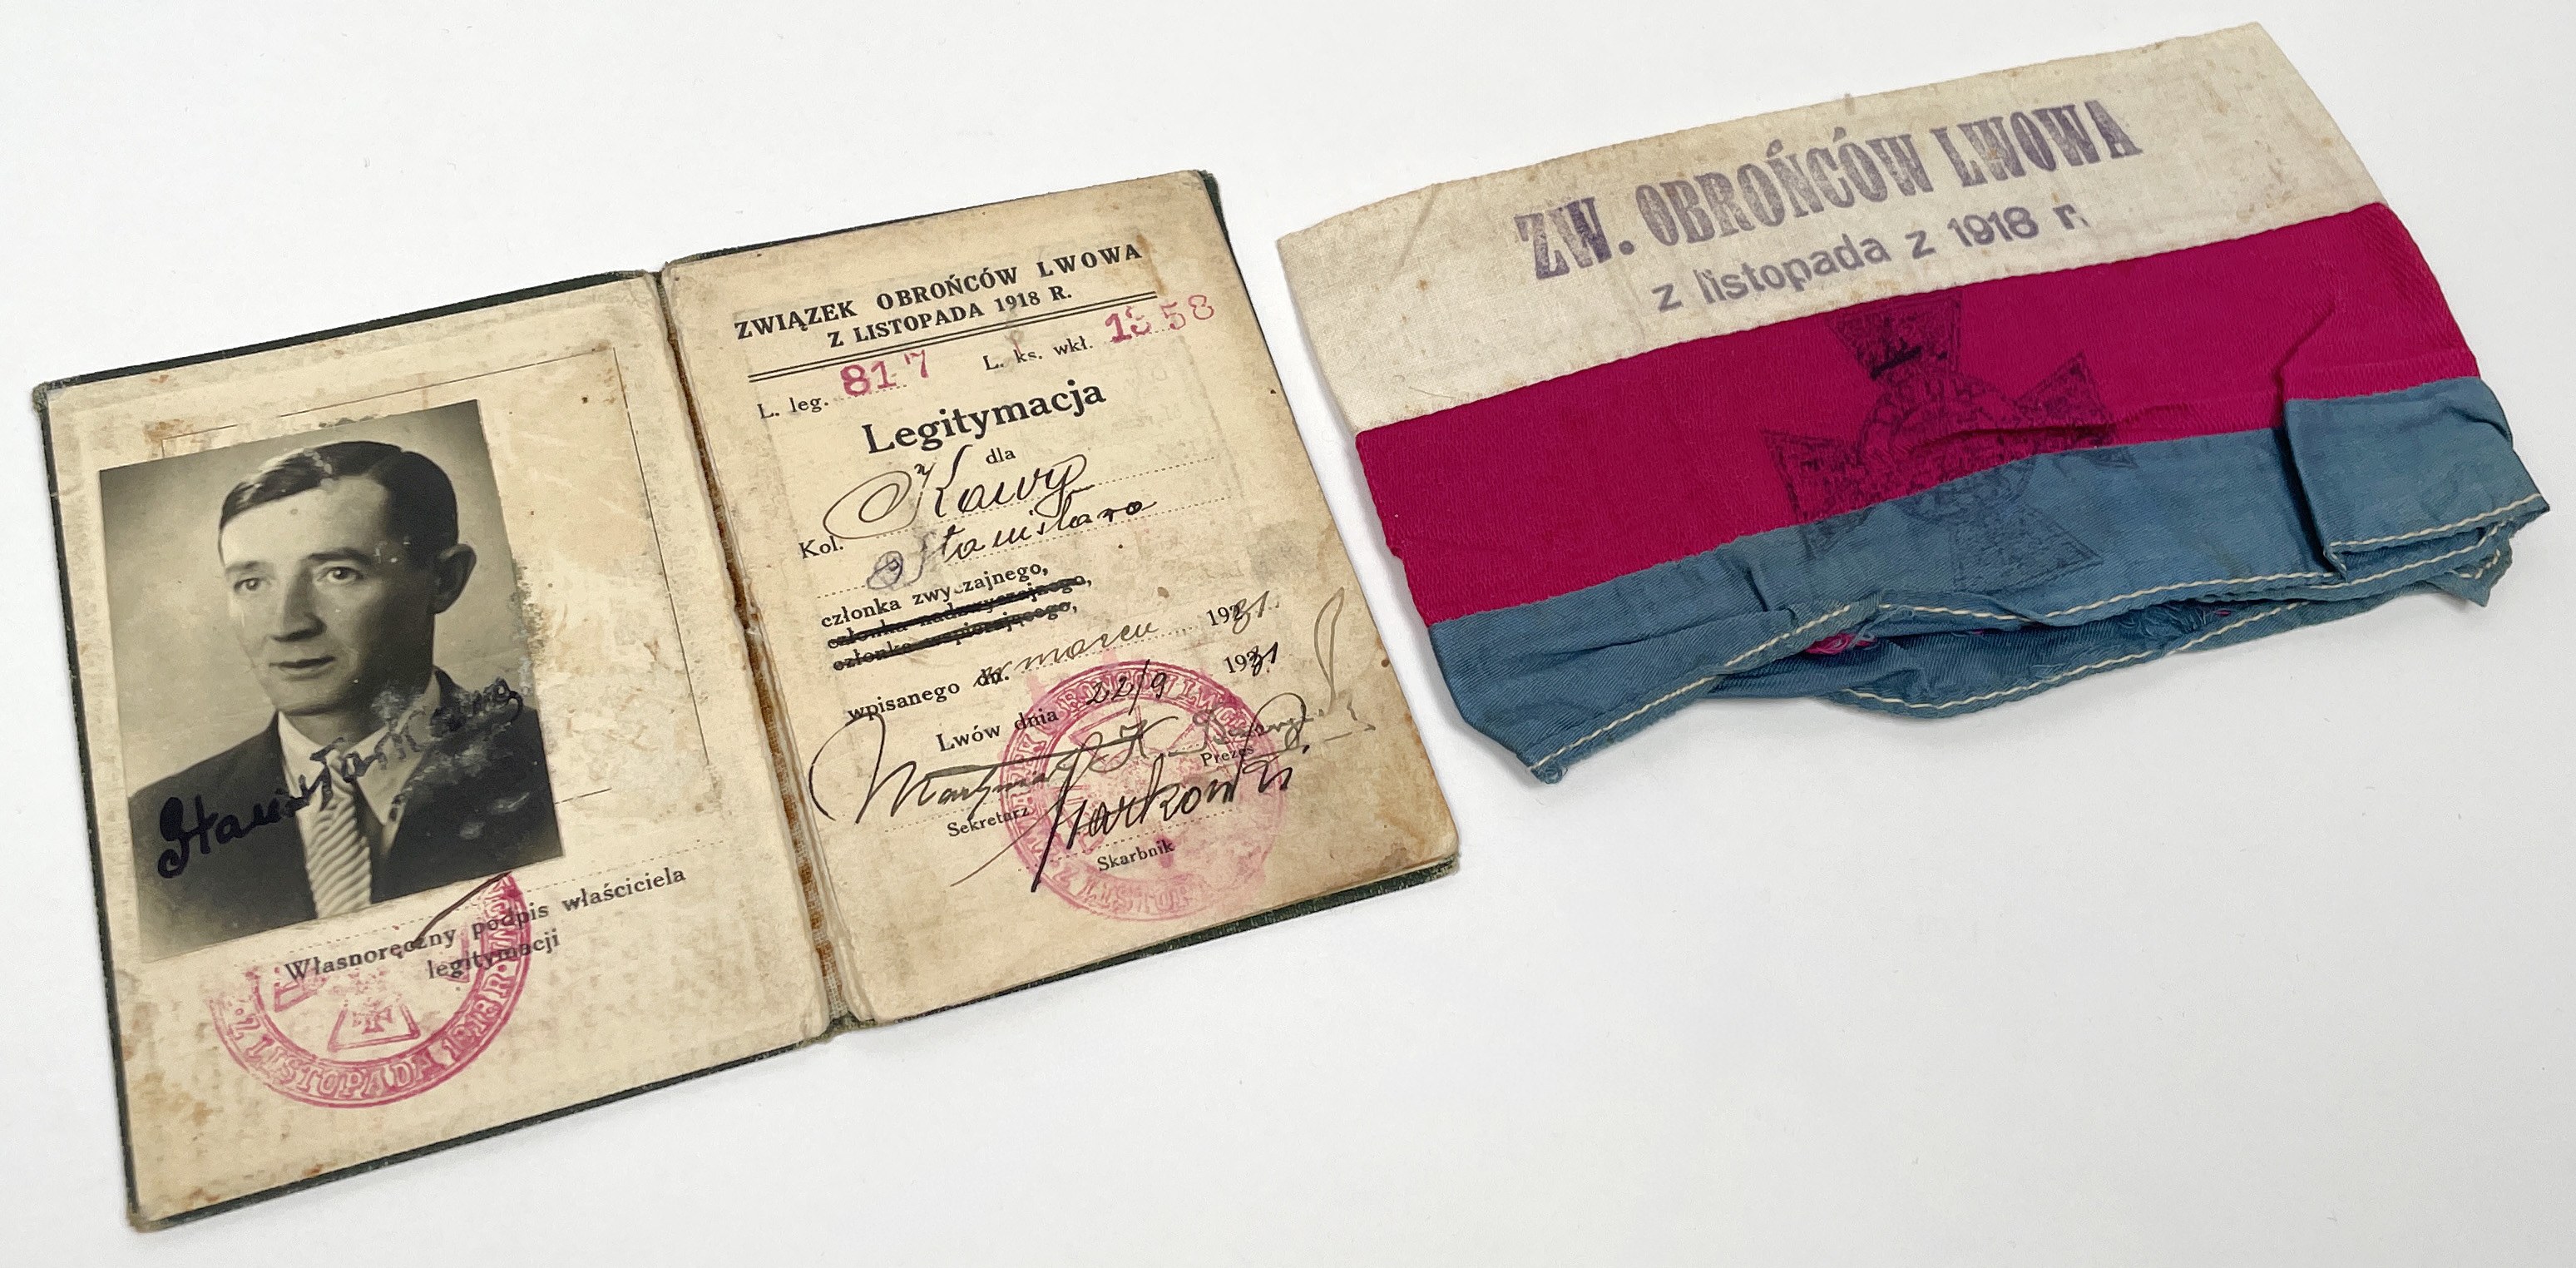 Stanisław Kawy
Własnoręczny podpis właściciela
legitymacji
Z LISTOPADA 1918 R.
ZWIĄZEK OBROŃCÓW LWOWA
Z LISTOPADA 1918 R.
L. leg. 817 L. ks. wkł. 1358
Legitymacja
dla
Kol. Kawy
Stanisława
członka zwyczajnego,
członka nadzwyczajnego,
członka wspierającego,
wpisanego dn. w marcu 1931
Lwów dnia 22/9 1931
Prezes
Sekretarz
Skarbnik
OBROŃCÓW LWOWA
Z LISTOP
ZW. OBROŃCÓW LWOWA
z listopada z 1918 r.